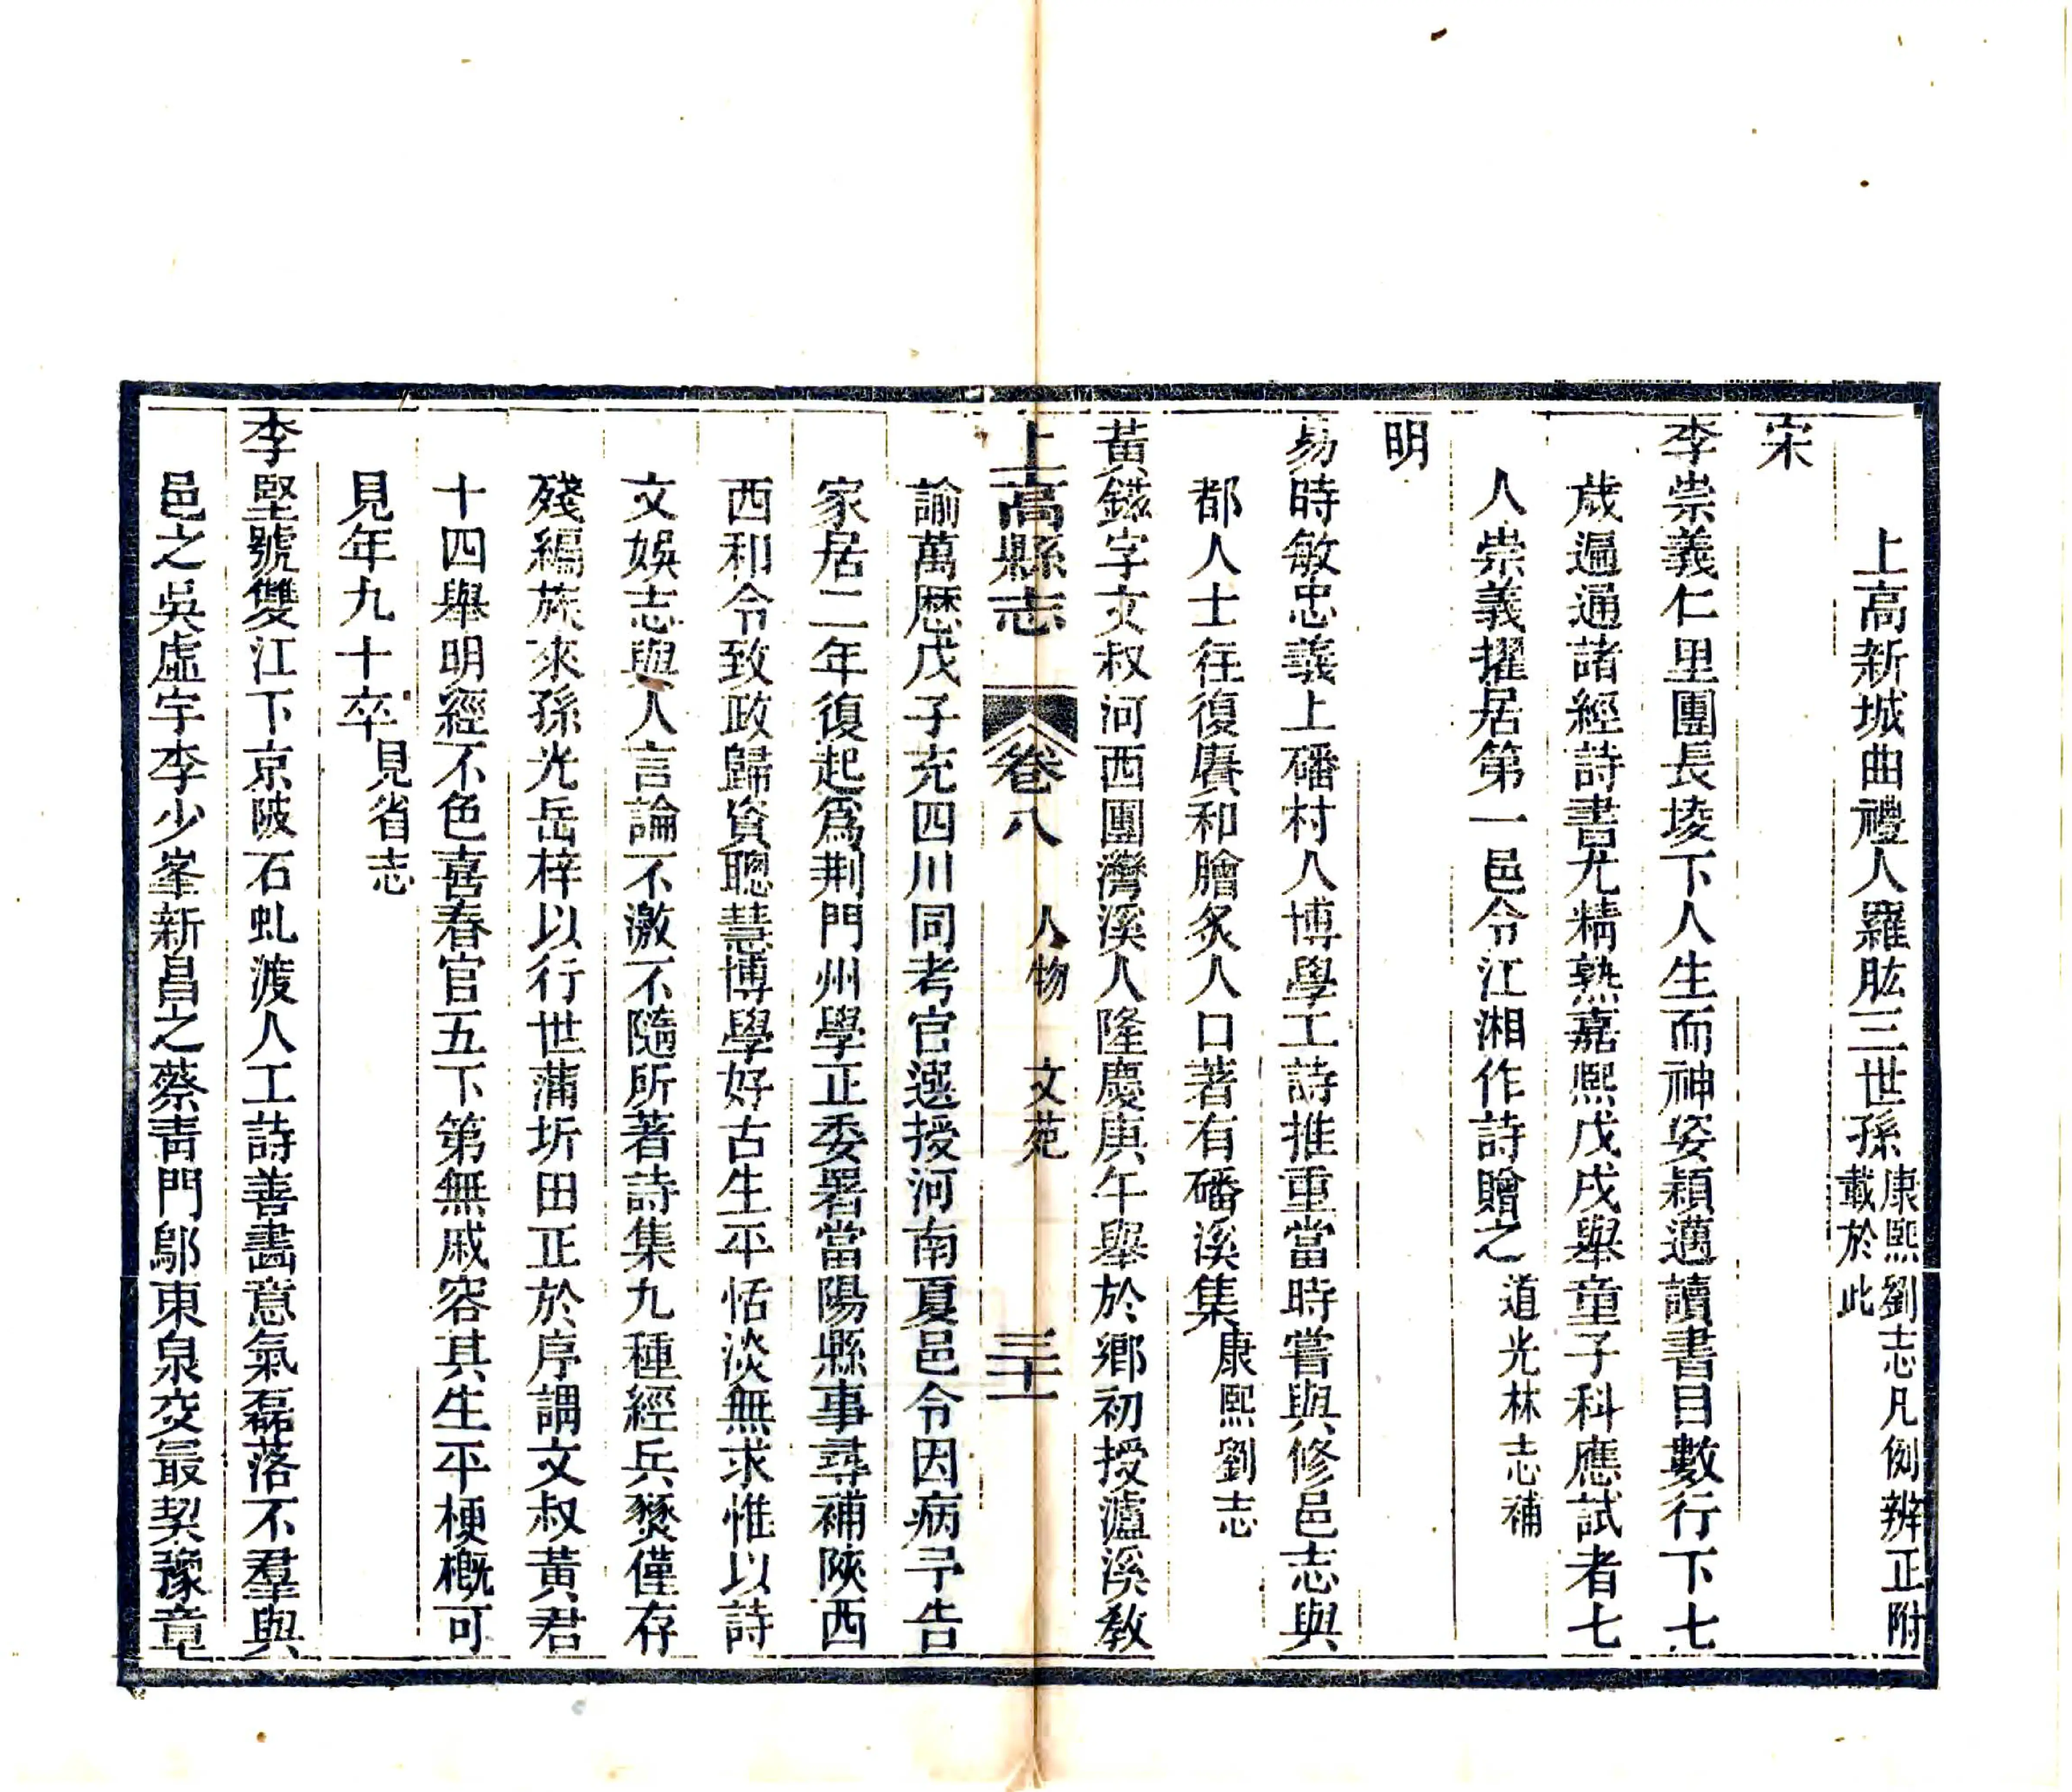 上高新城曲禮人羅肱三世孫康熙劉志凡例辨正附載於此
宋
李崇義仁里團長堎下人生而神姿穎邁讀書目數行下七
歲遍通諸經詩書尤精熟嘉熙戊戌舉童子科應試者七
人崇義擢居第一邑令江湘作詩贈之道光林志補
明
易時敏忠義上磻村人博學工詩推重當時嘗與修邑志與
都人士往復賡和膾炙人口著有磻溪集康熙劉志
黃鎡字文叔河西團灣溪人隆慶庚午舉於鄉初授瀘溪教
上高縣志 卷八 人物 文苑 三十一
諭萬厯戊子充四川同考官選授河南夏邑令因病予告
家居二年復起爲荆門州學正委署當陽縣事尋補陝西
西和令致政歸資聰慧博學好古生平恬淡無求惟以詩
文娛志與人言論不激不隨所著詩集九種經兵燹僅存
殘編族來孫光岳梓以行世蒲圻田正於序謂文叔黃君
十四舉明經不色喜春官五下第無戚容其生平梗概可
見年九十卒見省志
李堅號雙江下京陂石虬渡人工詩善畵意氣磊落不羣與
邑之吳虛宇李少峯新昌之蔡靑門鄔東泉交最契豫章